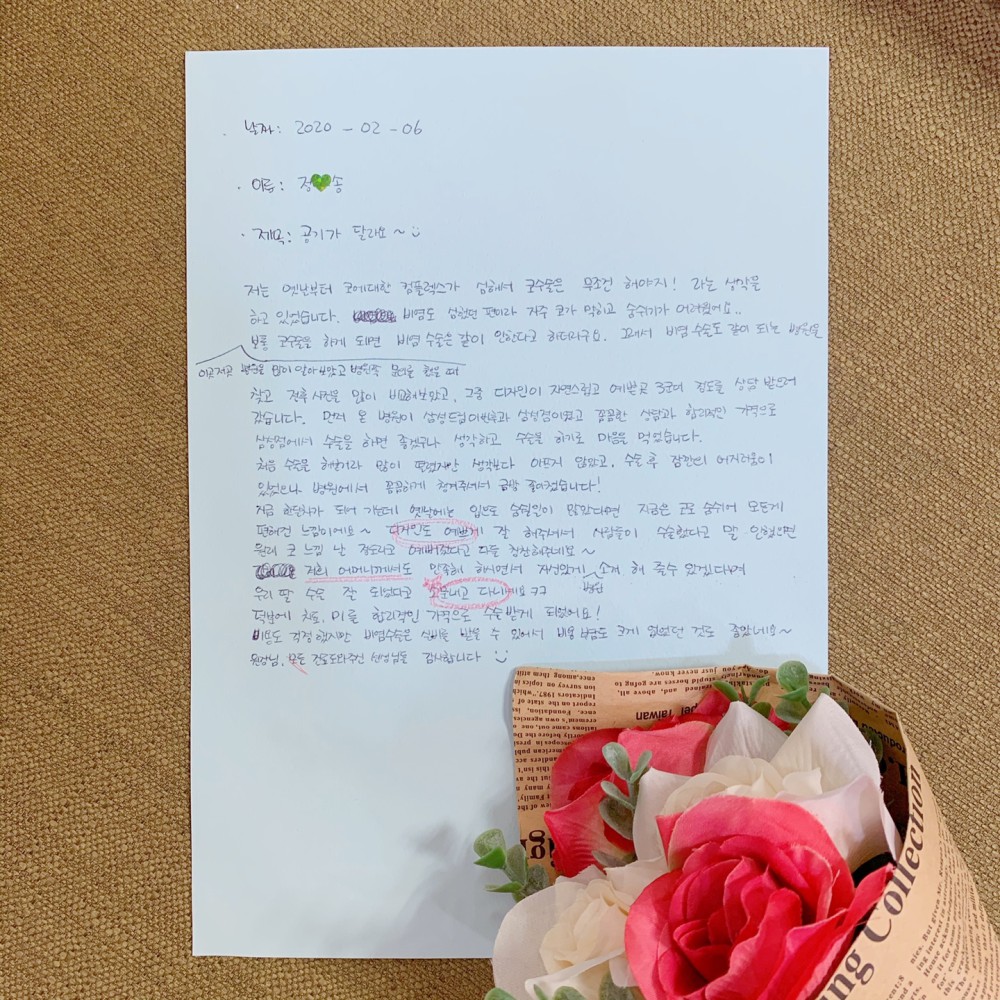 날짜: 2020 - 02 - 06
이름: 정💚송
제목: 공기가 달라요~
저는 옛날부터 코에대한 컴플렉스가 심해서 코수술은 무조건 해야지! 라는 생각을
하고 있었습니다. 비염도 심했던 편이라 자주 코가 막히고 숨쉬기가 어려웠어요..
보통 코수술을 하게 되면 비염 수술은 같이 안한다고 하더라구요. 그래서 비염 수술도 같이 되는 병원을
이곳저곳 병원을 많이 알아보았고 병원쪽 문의를 했을 때
찾고 전후 사진을 많이 비교해보았고, 그중 디자인이 자연스럽고 예쁜곳 3군데 정도를 상담 받으러
갔습니다. 먼저 온 병원이 삼성드림이비인후과 삼성점이였고 꼼꼼한 상담과 합리적인 가격으로
삼성점에서 수술을 하면 좋겠구나 생각하고 수술을 하기로 마음을 먹었습니다.
처음 수술을 해본거라 많이 떨렸지만 생각보다 아프지 않았고, 수술 후 잠깐의 어지러움이
있었으나 병원에서 꼼꼼하게 챙겨주셔서 금방 좋아졌습니다!
지금 한달차가 되어 가는데 옛날에는 입으로 숨쉴일이 많았다면 지금은 코로 숨쉬어
편해진 느낌이에요~ 디자인도 예쁘게 잘 해주셔서 사람들이 수술했다고 말 안했으면
원래 코 느낌 난 정도라고 예뻐졌다고 다들 칭찬해주네요~
저희 어머니께서도 만족해 하시면서 자신있게 소개 해 줄수 있겠다하며
병원
우리 딸 수술 잘 되었다고 소문내고 다니세요ㅋㅋ
덕분에 치료, 미를 합리적인 가격으로 수술받게 되었어요!
비용도 걱정했지만 비염수술은 실비를 받을 수 있어서 비용 부담도 크게 없었던 것도 좋았네요~
원장님, 모든 진료도와주신 선생님들 감사합니다
pei Taiwan
ng Collection